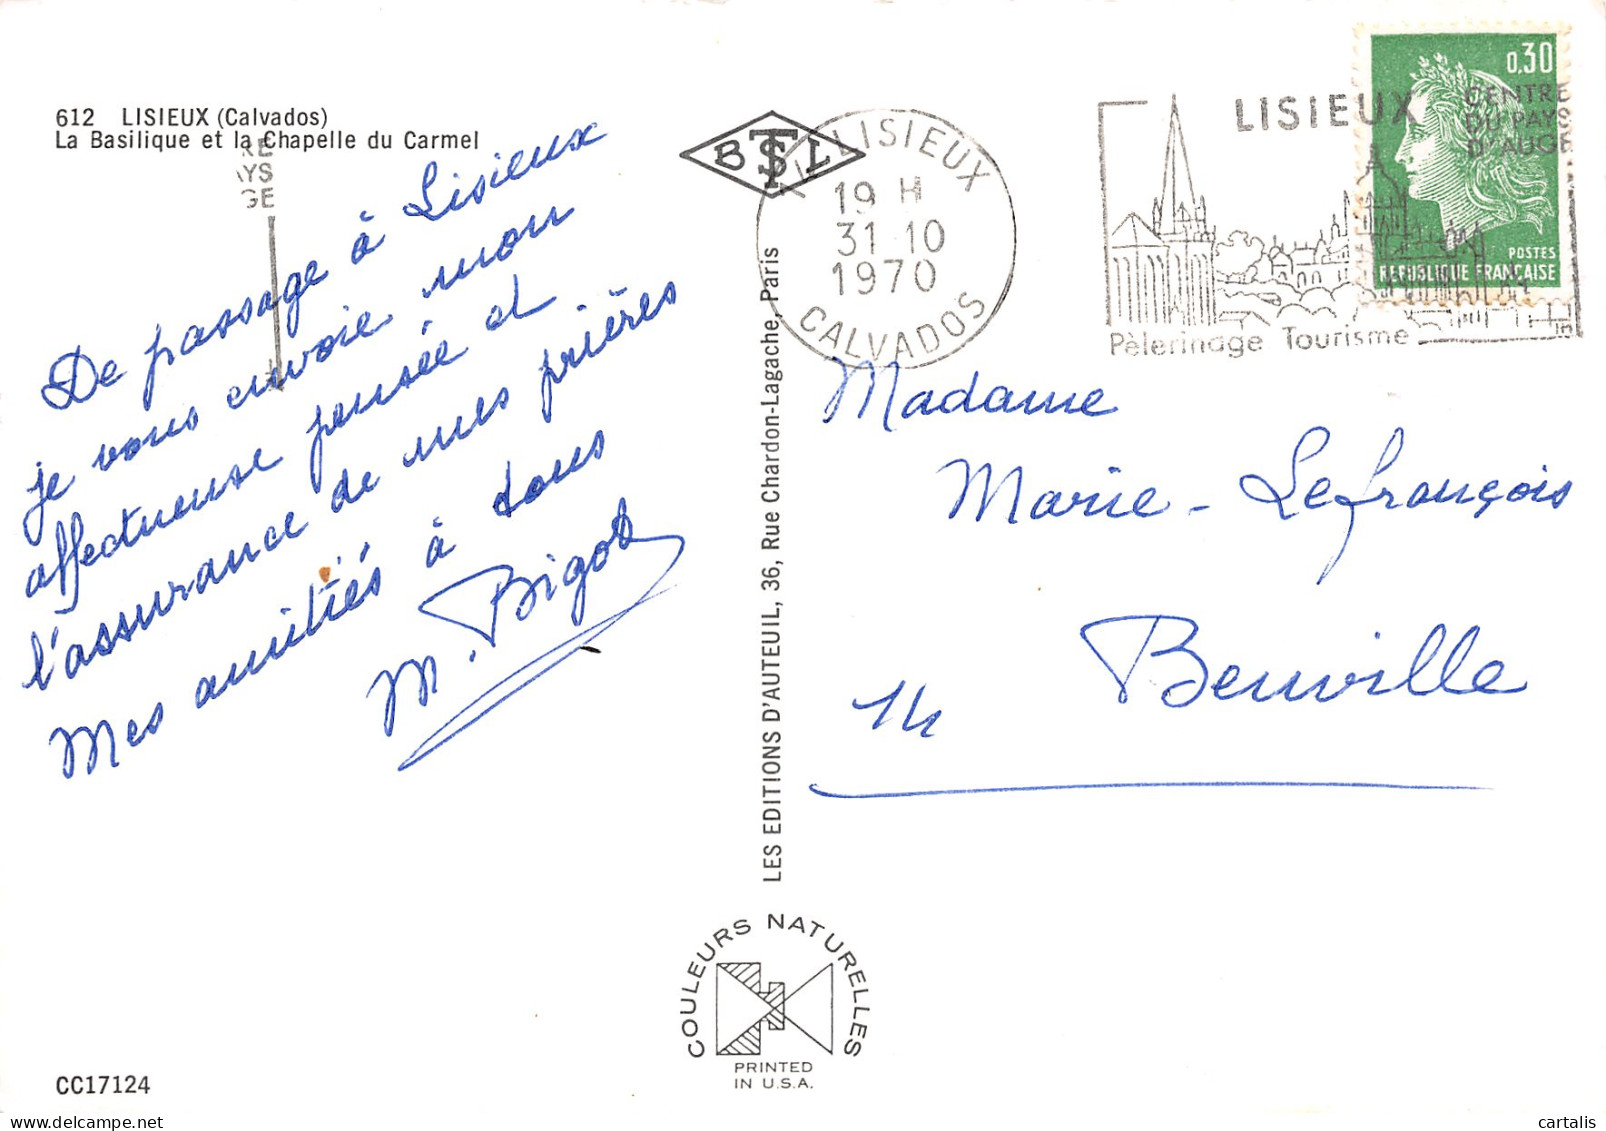 612 LISIEUX (Calvados)
La Basilique et la Chapelle du Carmel
RE
AYS
GE
De passage à Lisieux
je vous envoie, mon
affectueuse pensée et
l'assurance de mes prières
Mes amitiés à tous
M. Bigot
BTSL
LISIEUX
19 H
31 10
1970
CALVADOS
LISIEUX
CENTRE
DU PAYS
D'AUGE
Pèlerinage Tourisme
0,30
POSTES
REPUBLIQUE FRANÇAISE
Madame
Marie-Lefrançois
Beuville
14
LES EDITIONS D'AUTEUIL, 36, Rue Chardon-Lagache, Paris
COULEURS NATURELLES
PRINTED
IN U.S.A.
CC17124
cartalis
delcampe.net